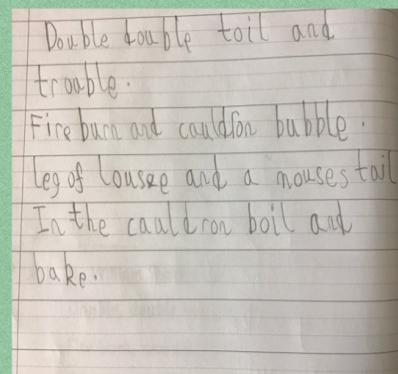 Double double toil and
trouble.
Fire burn and cauldron bubble.
leg of lousee and a mouses tail
In the cauldron boil and
bake.